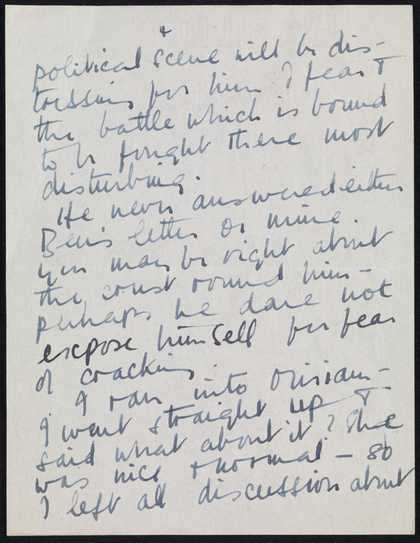 political & scene will be dis-
tressing for him I fear &
the battle which is bound
to be fought there most
disturbing.
He never answered either
Ben's letter or mine.
You may be right about
the crust round him -
perhaps he dare not
expose himself for fear
of cracking.
I ran into
I went straight up &
said what about it? She
was nice & normal - so
I left all discussion about